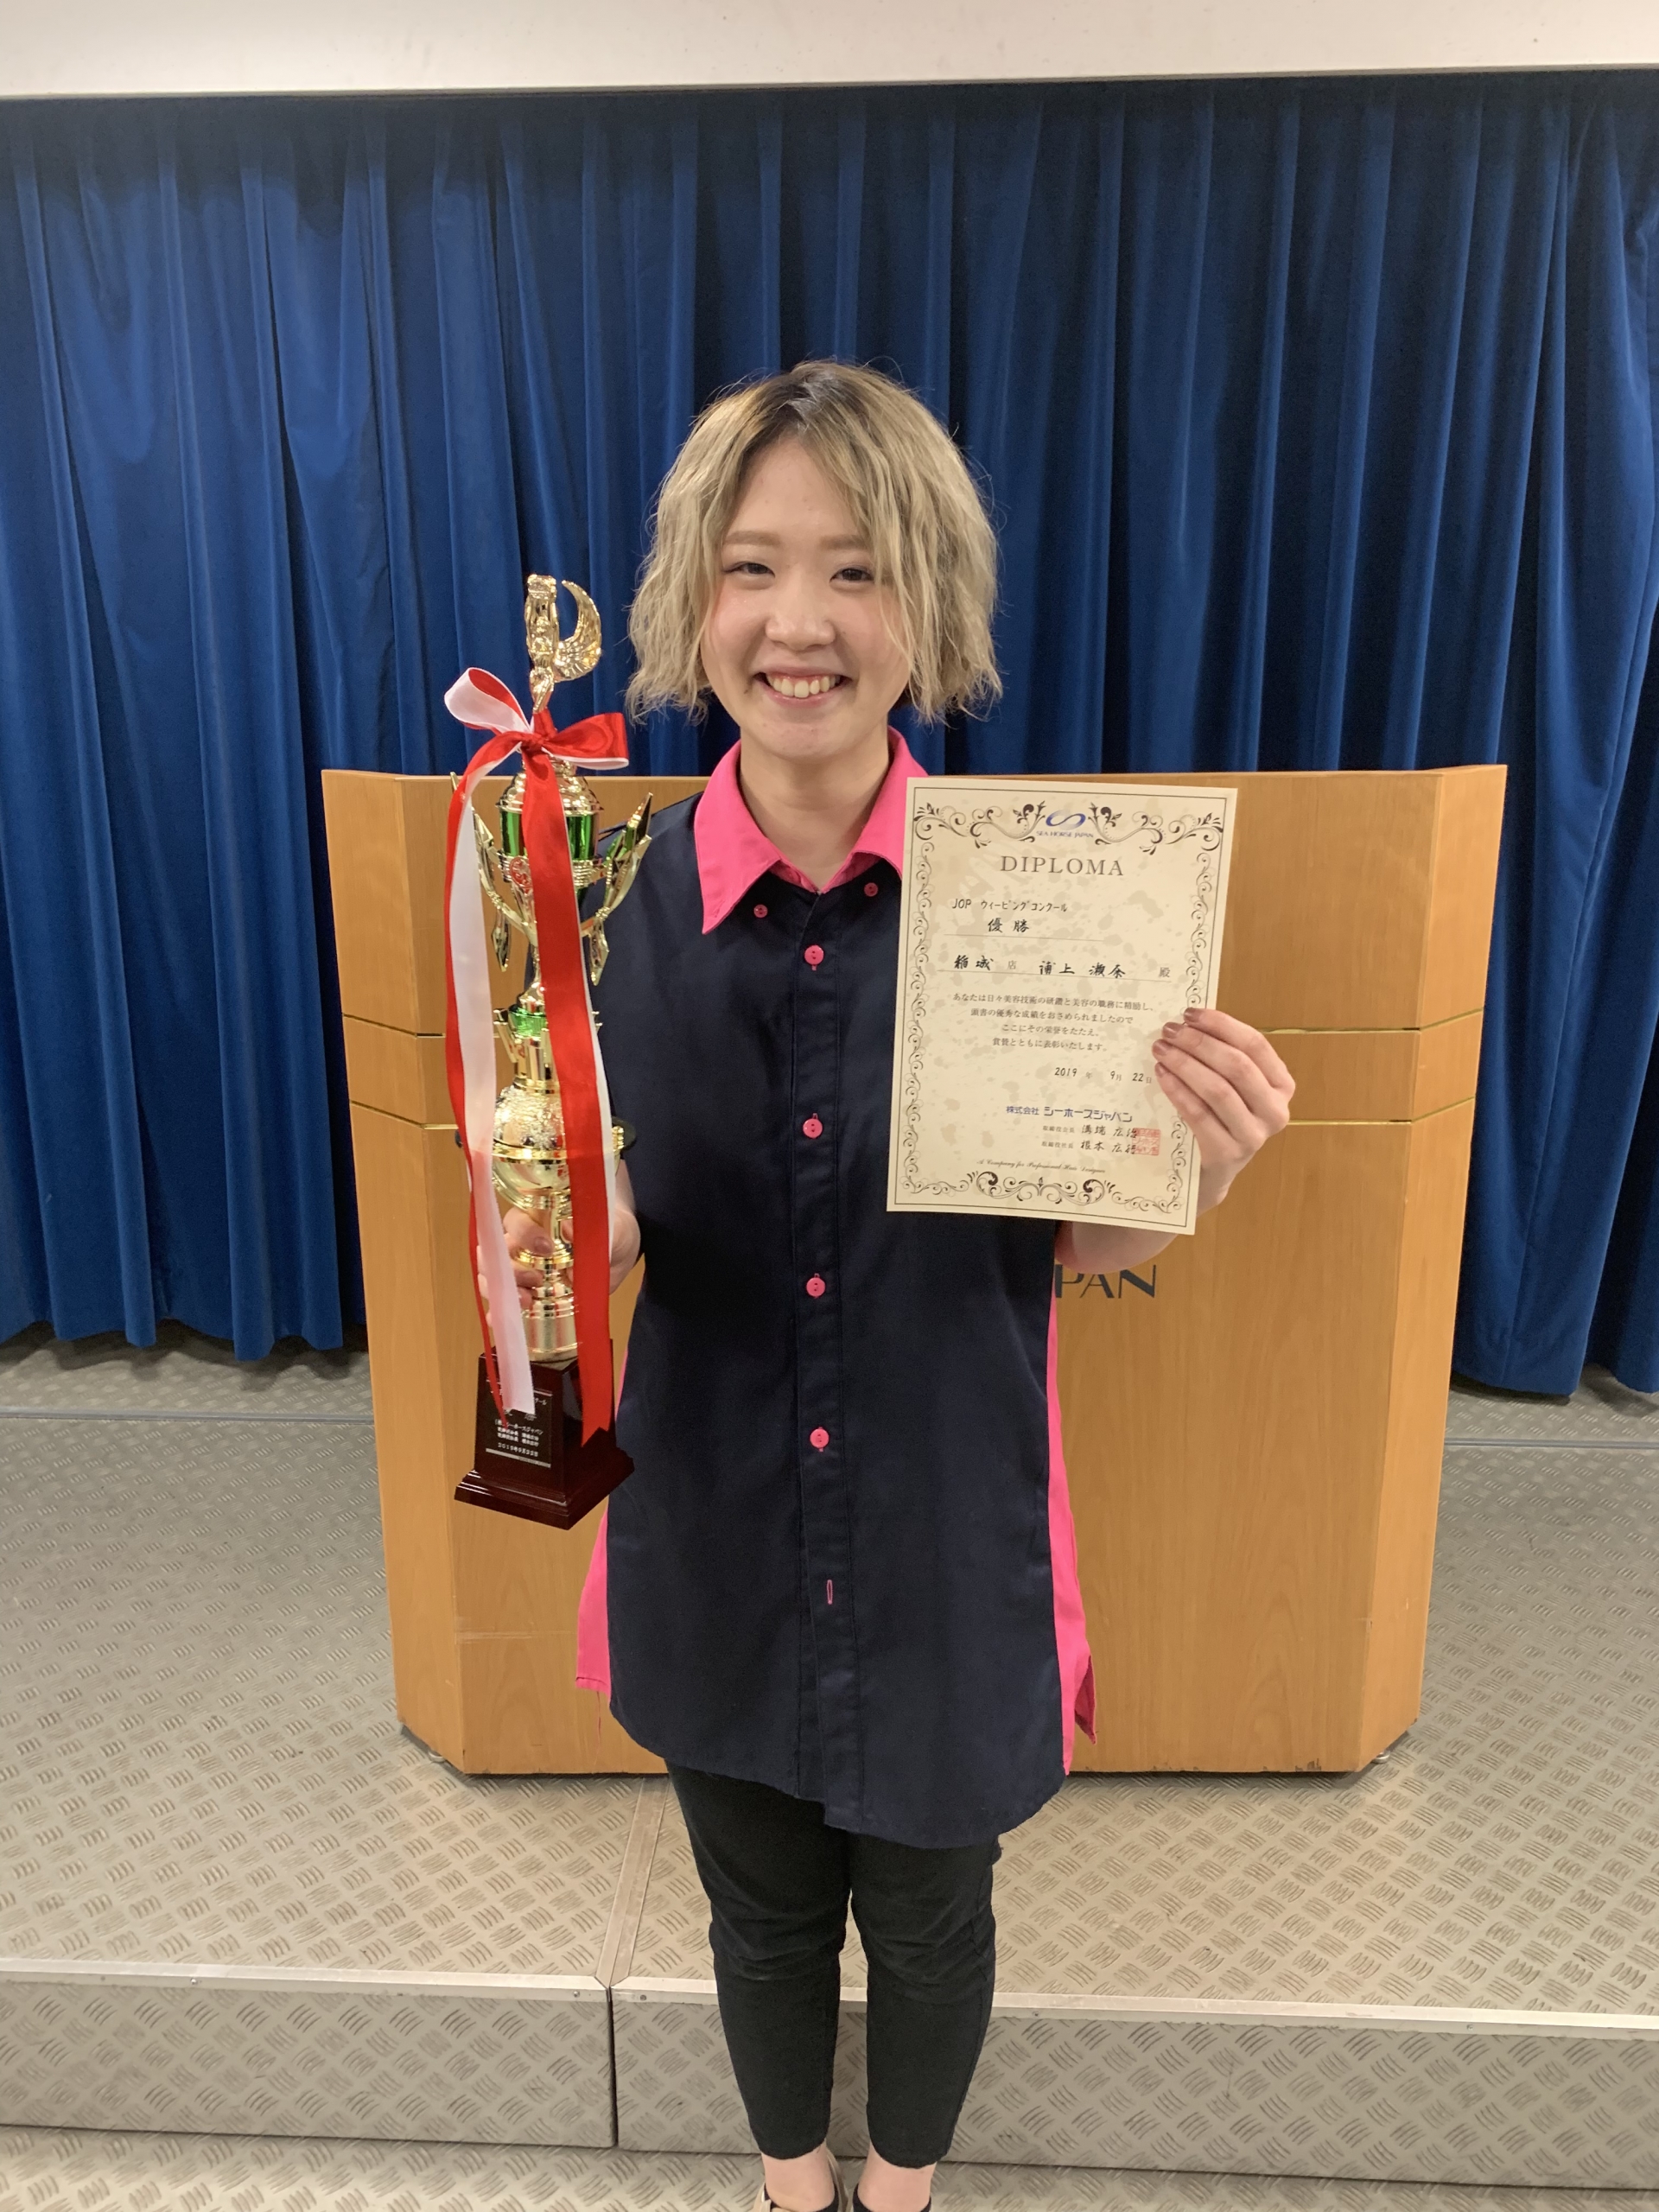 SEA HORSE JAPAN
DIPLOMA
JOP ウィービングコンクール
優勝
稲城 店 浦上 瀬奈 殿
あなたは日々美容技術の研鑽と美容の職務に精励し、
頭書の優秀な成績をおさめられましたので
ここにその栄誉をたたえ、
賞管とともに表彰いたします。
2019 年 9月 22日
株式会社 シーホースジャパン
取締役会長 溝端 広治
取締役社長 根本 広
A Company for Professional Hair Designer
PAN
2019年9月22日